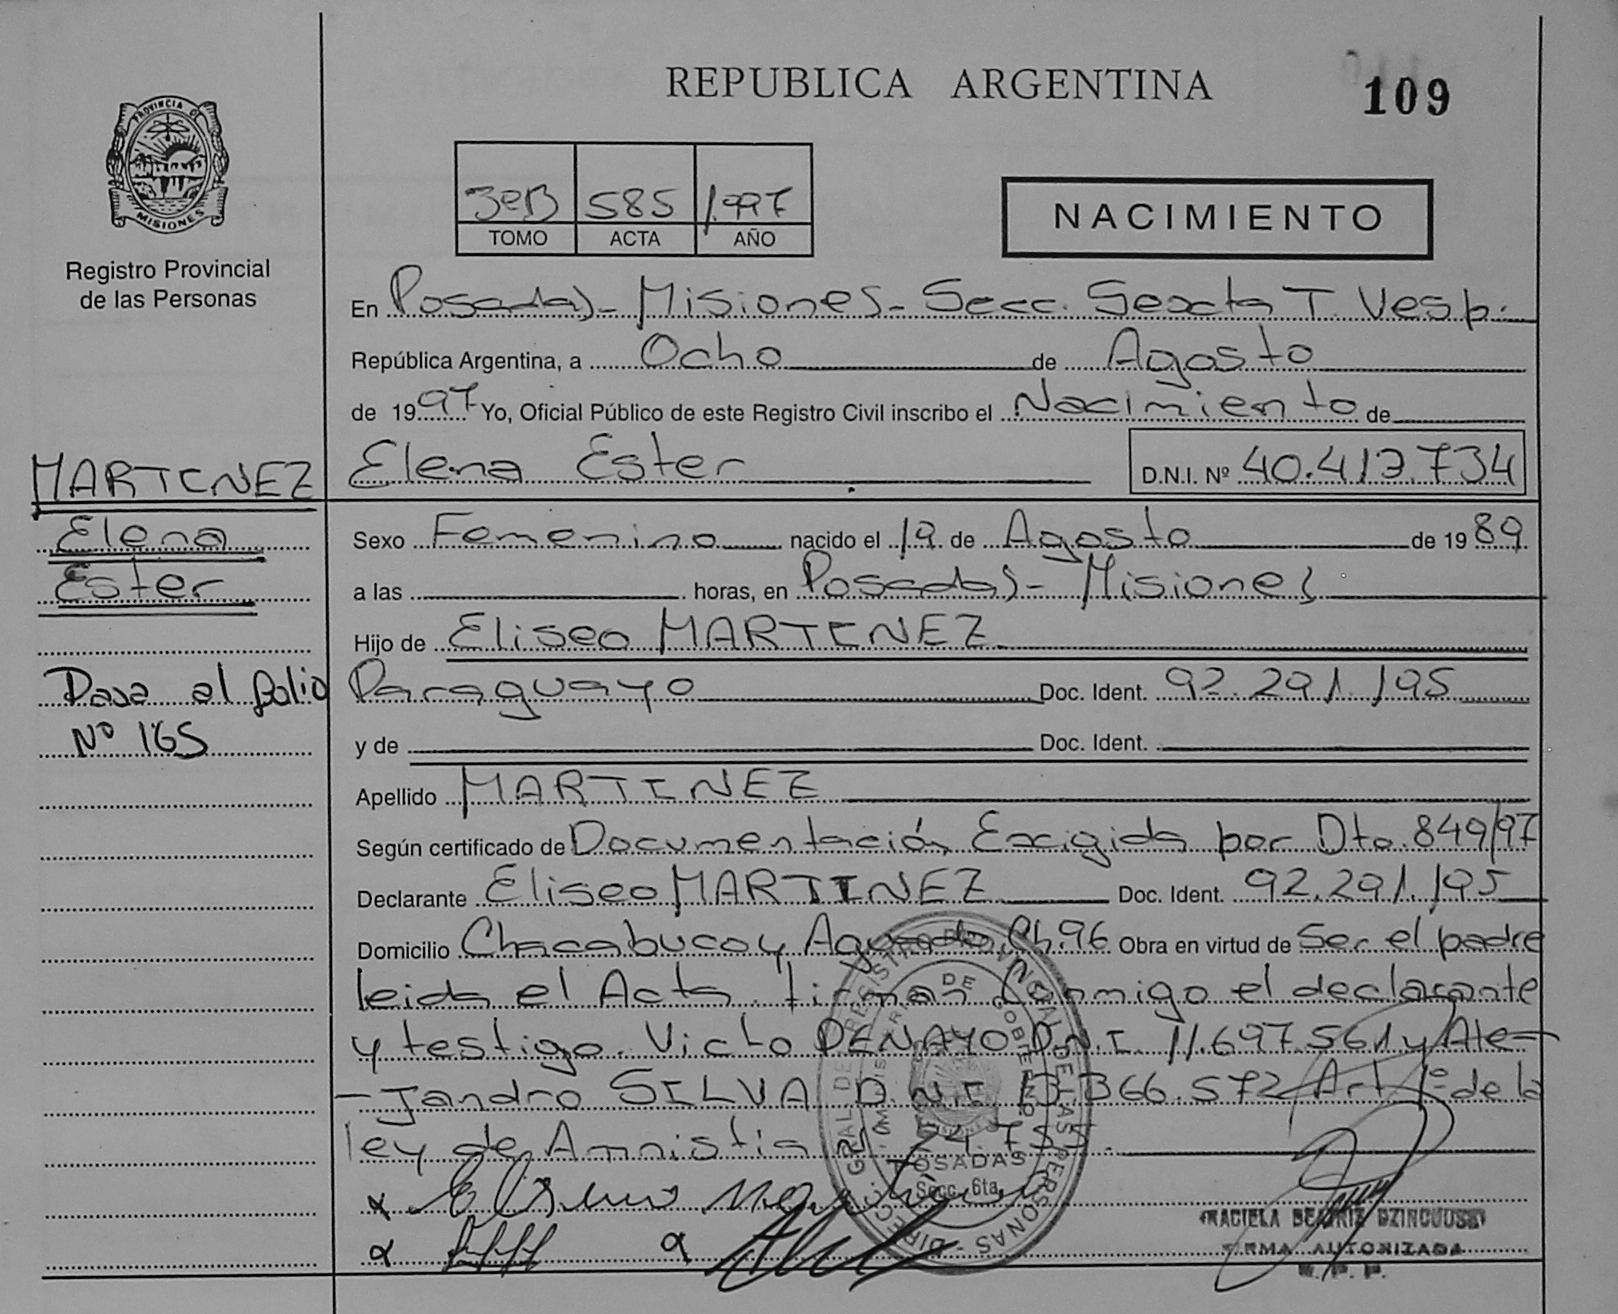 REPUBLICA ARGENTINA
109
PROVINCIA DE
MISIONES
Registro Provincial
de las Personas
3ºB 585 1.997
TOMO ACTA AÑO
NACIMIENTO
En Posadas - Misiones - Secc. Sexta T. Vesp.
República Argentina, a Ocho de Agosto
de 1997 Yo, Oficial Público de este Registro Civil inscribo el Nacimiento de
Elena Ester D.N.I. Nº 40.413.734
MARTINEZ
Elena
Ester
Pasa al folio
Nº 165
Sexo Femenino nacido el 19 de Agosto de 1989
a las horas, en Posadas - Misiones
Hijo de Eliseo MARTINEZ
Paraguayo Doc. Ident. 92.291.195
y de Doc. Ident.
Apellido MARTINEZ
Según certificado de Documentación Exigida por Dto. 849/97
Declarante Eliseo MARTINEZ Doc. Ident. 92.291.195
Domicilio Chacabuco y Aguado Ch.96 Obra en virtud de Ser el padre
leida el Acta firman Conmigo el declarante
y testigo. Victo DENAYO D.N.I. 11.697.561 y Ale-
-jandro SILVA D.N.I. 13.366.572 Art. 1º de la
ley de Amnistia
POSADAS
Secc. 6ta.
GRACIELA BEATRIZ
FIRMA AUTORIZADA
R. P. P.